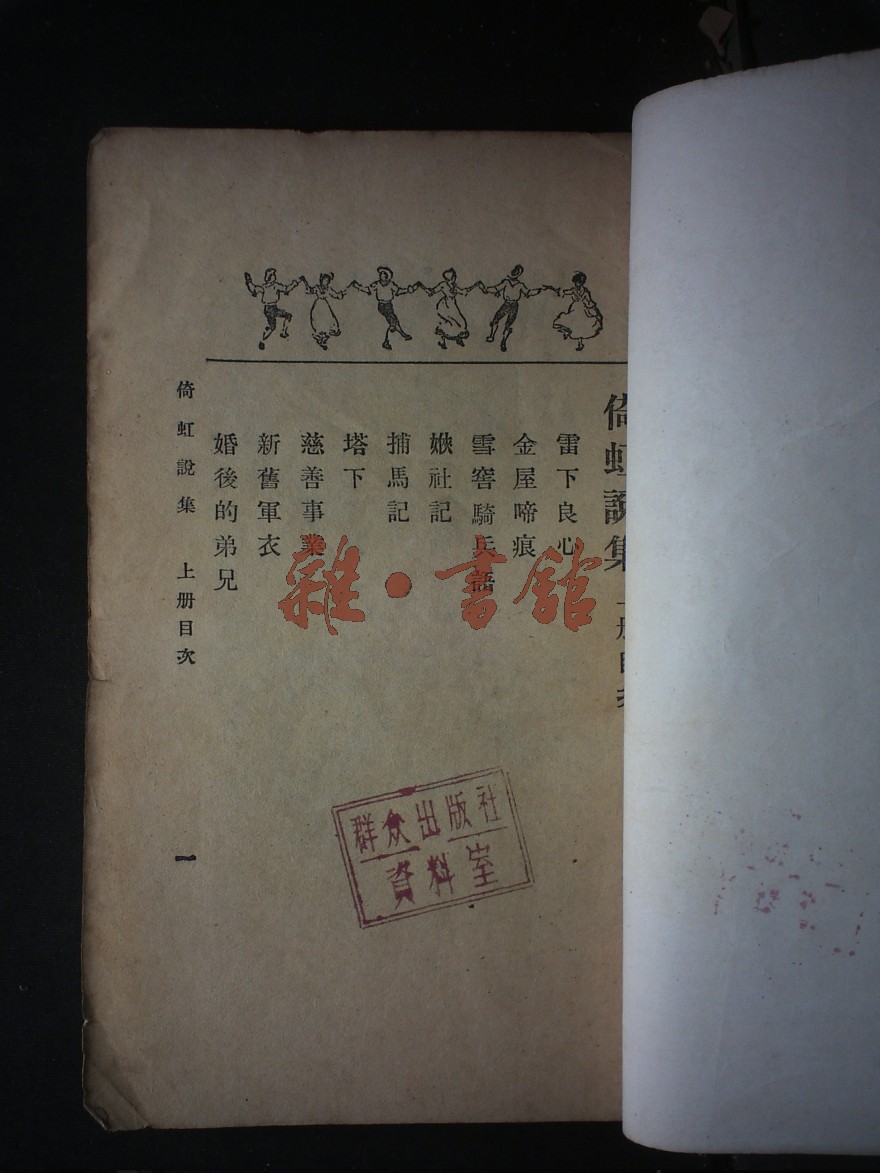 倚虹說集上册目次
雷下良心
金屋啼痕
雪窖騎兵語
娰社記
捕馬記
塔下
慈善事業
新舊軍衣
婚後的弟兄
倚虹說集 上册目次
一
雜·書館
群众出版社
資料室